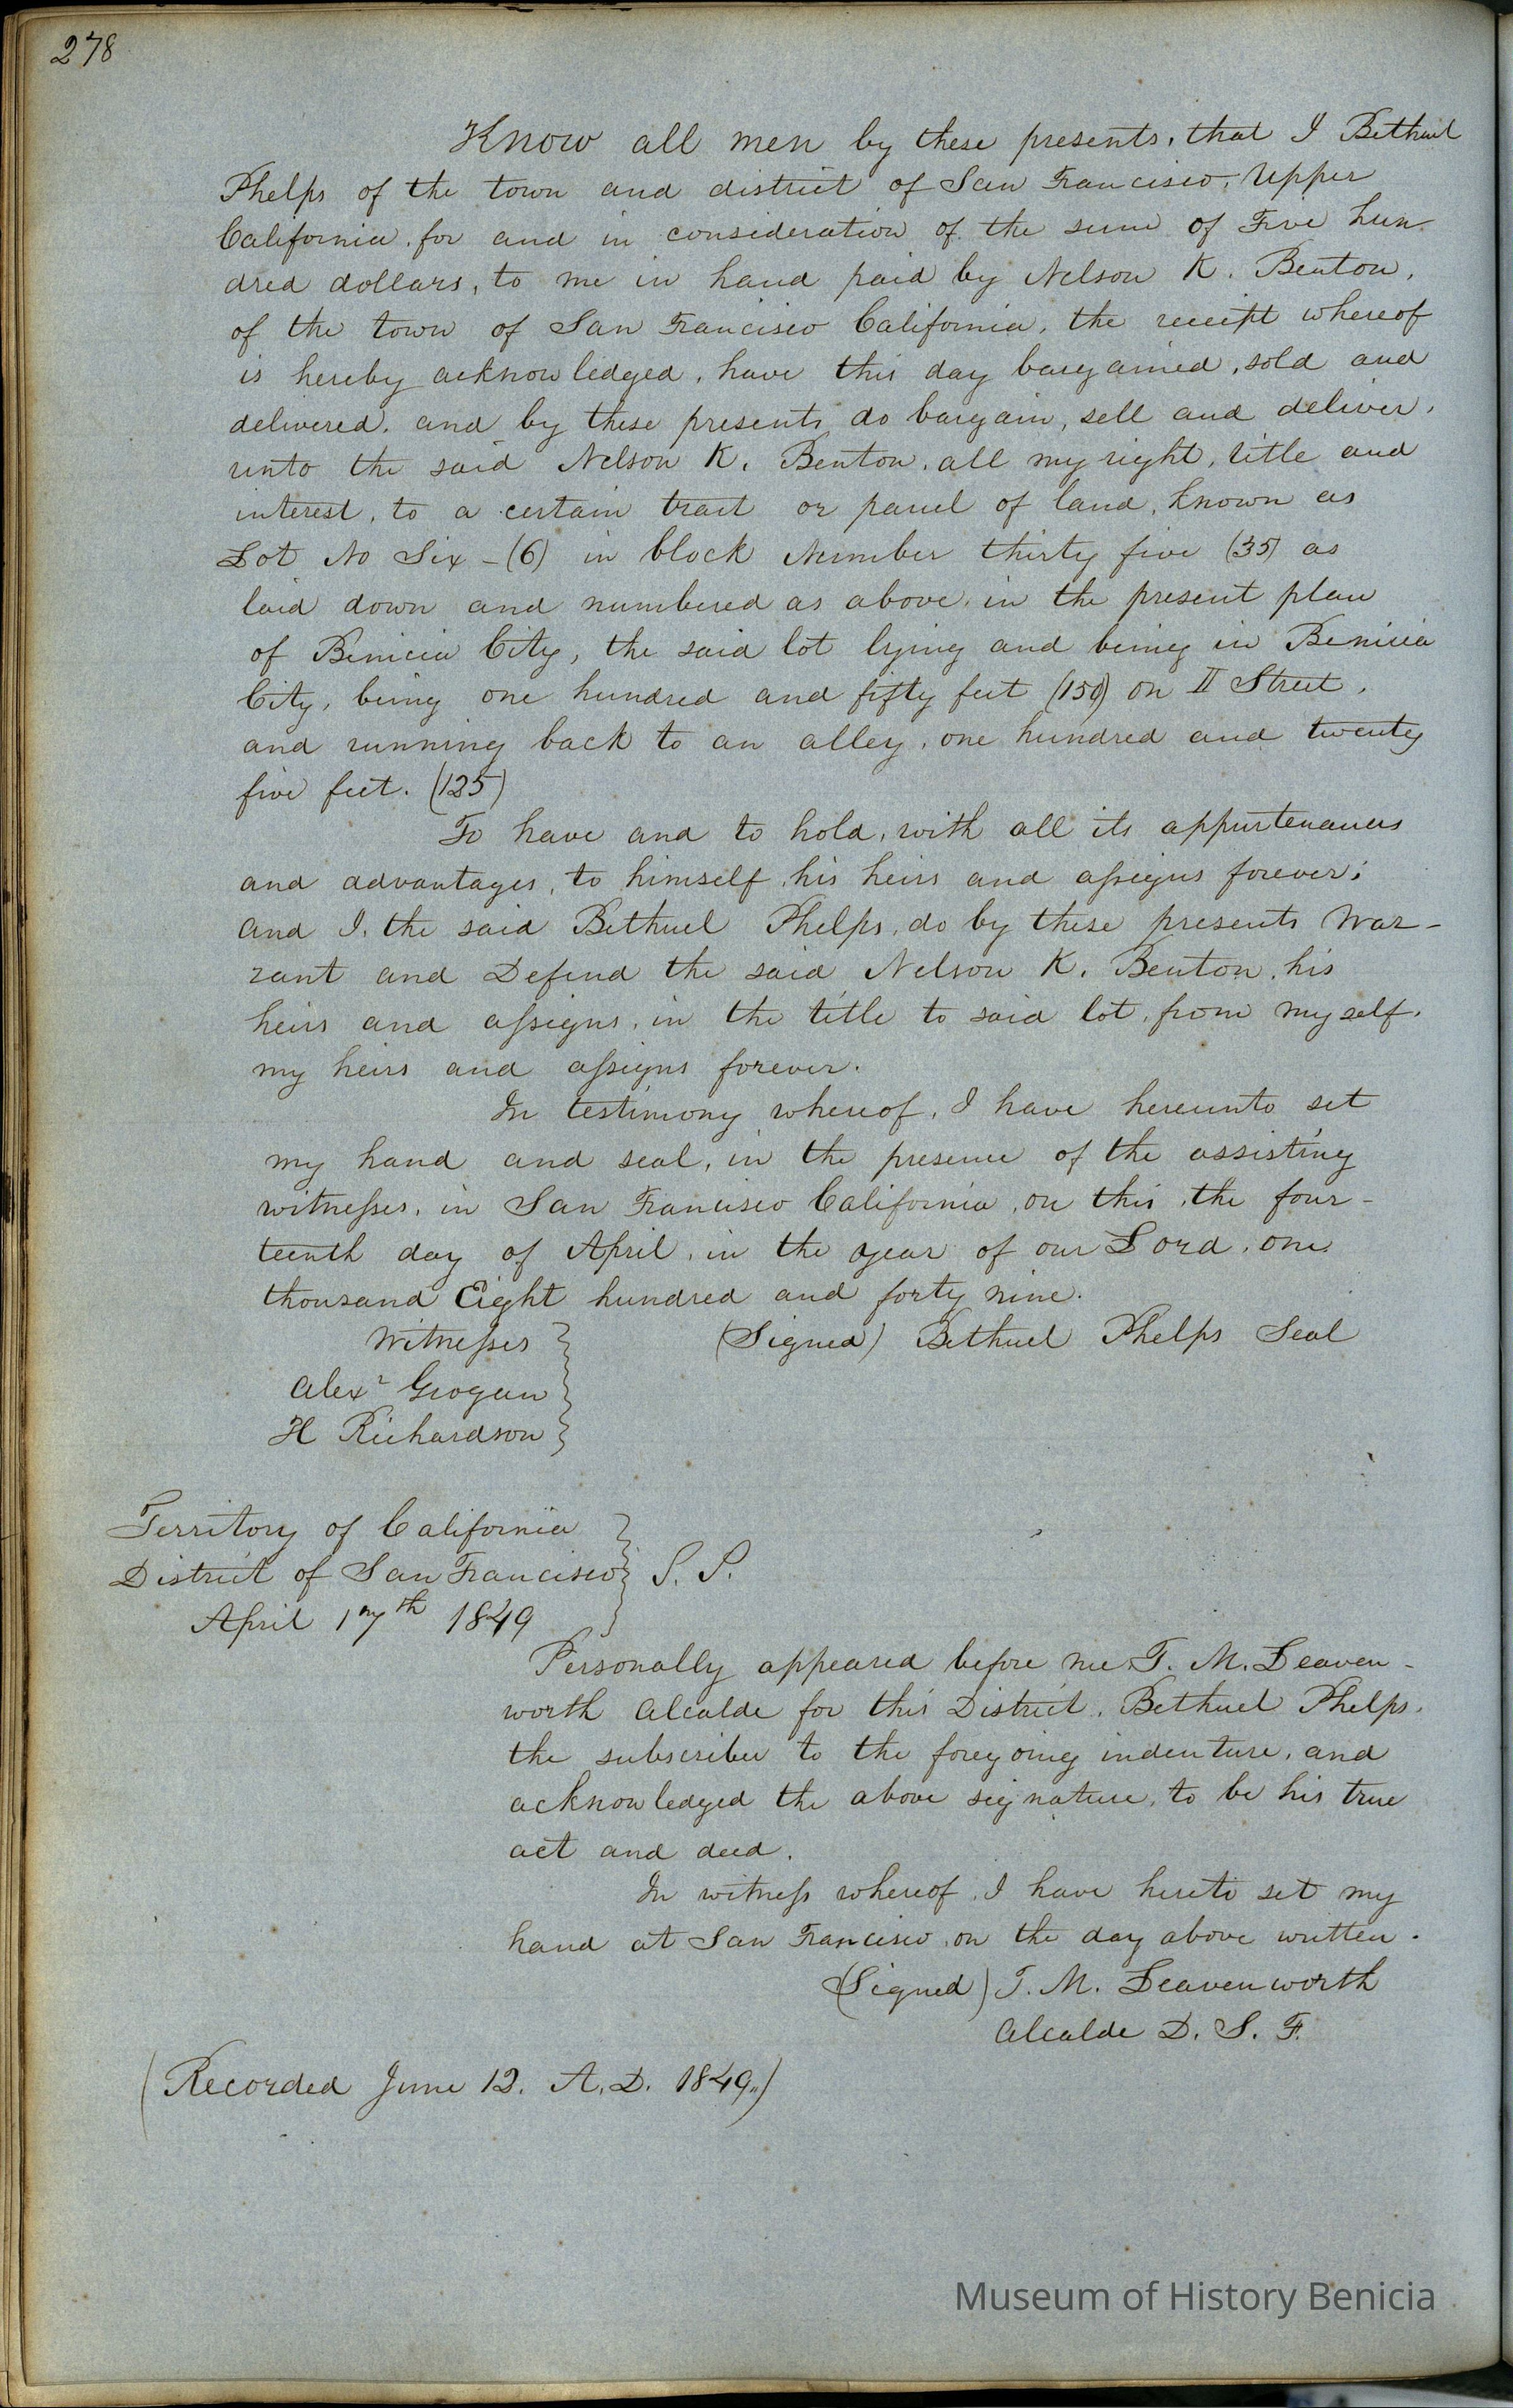 278
Know all men by these presents, that I Bethuel
Phelps of the town and district of San Francisco, Upper
California, for and in consideration of the sum of Five hun-
dred dollars, to me in hand paid by Nelson K. Benton,
of the town of San Francisco California, the receipt whereof
is hereby acknowledged, have this day bargained, sold and
delivered, and by these presents do bargain, sell and deliver,
unto the said Nelson K. Benton, all my right, title and
interest, to a certain tract or parcel of land, known as
Lot No Six - (6) in block Number thirty five (35) as
laid down and numbered as above, in the present plan
of Benicia City, the said lot lying and being in Benicia
City, being one hundred and fifty feet (150) on II Street,
and running back to an alley, one hundred and twenty
five feet. (125)
To have and to hold, with all its appurtenances
and advantages, to himself, his heirs and assigns forever;
and I, the said Bethuel Phelps, do by these presents War-
rant and Defend the said Nelson K. Benton, his
heirs and assigns, in the title to said lot, from myself,
my heirs and assigns forever.
In testimony whereof, I have hereunto set
my hand and seal, in the presence of the assisting
witnesses, in San Francisco California, on this, the four-
teenth day of April, in the year of our Lord, one
thousand Eight hundred and forty nine.
Witnesses (Signed) Bethuel Phelps Seal
Alexr Grogan
H Richardson
Territory of California
District of San Francisco S. S.
April 17th 1849
Personally appeared before me T. M. Leaven-
worth Alcalde for this District, Bethuel Phelps,
the subscriber to the foregoing indenture, and
acknowledged the above signature, to be his true
act and deed.
In witness whereof, I have hereto set my
hand at San Francisco, on the day above written.
(Signed) T. M. Leavenworth
Alcalde D. S. F.
(Recorded June 12. A.D. 1849,,)
Museum of History Benicia